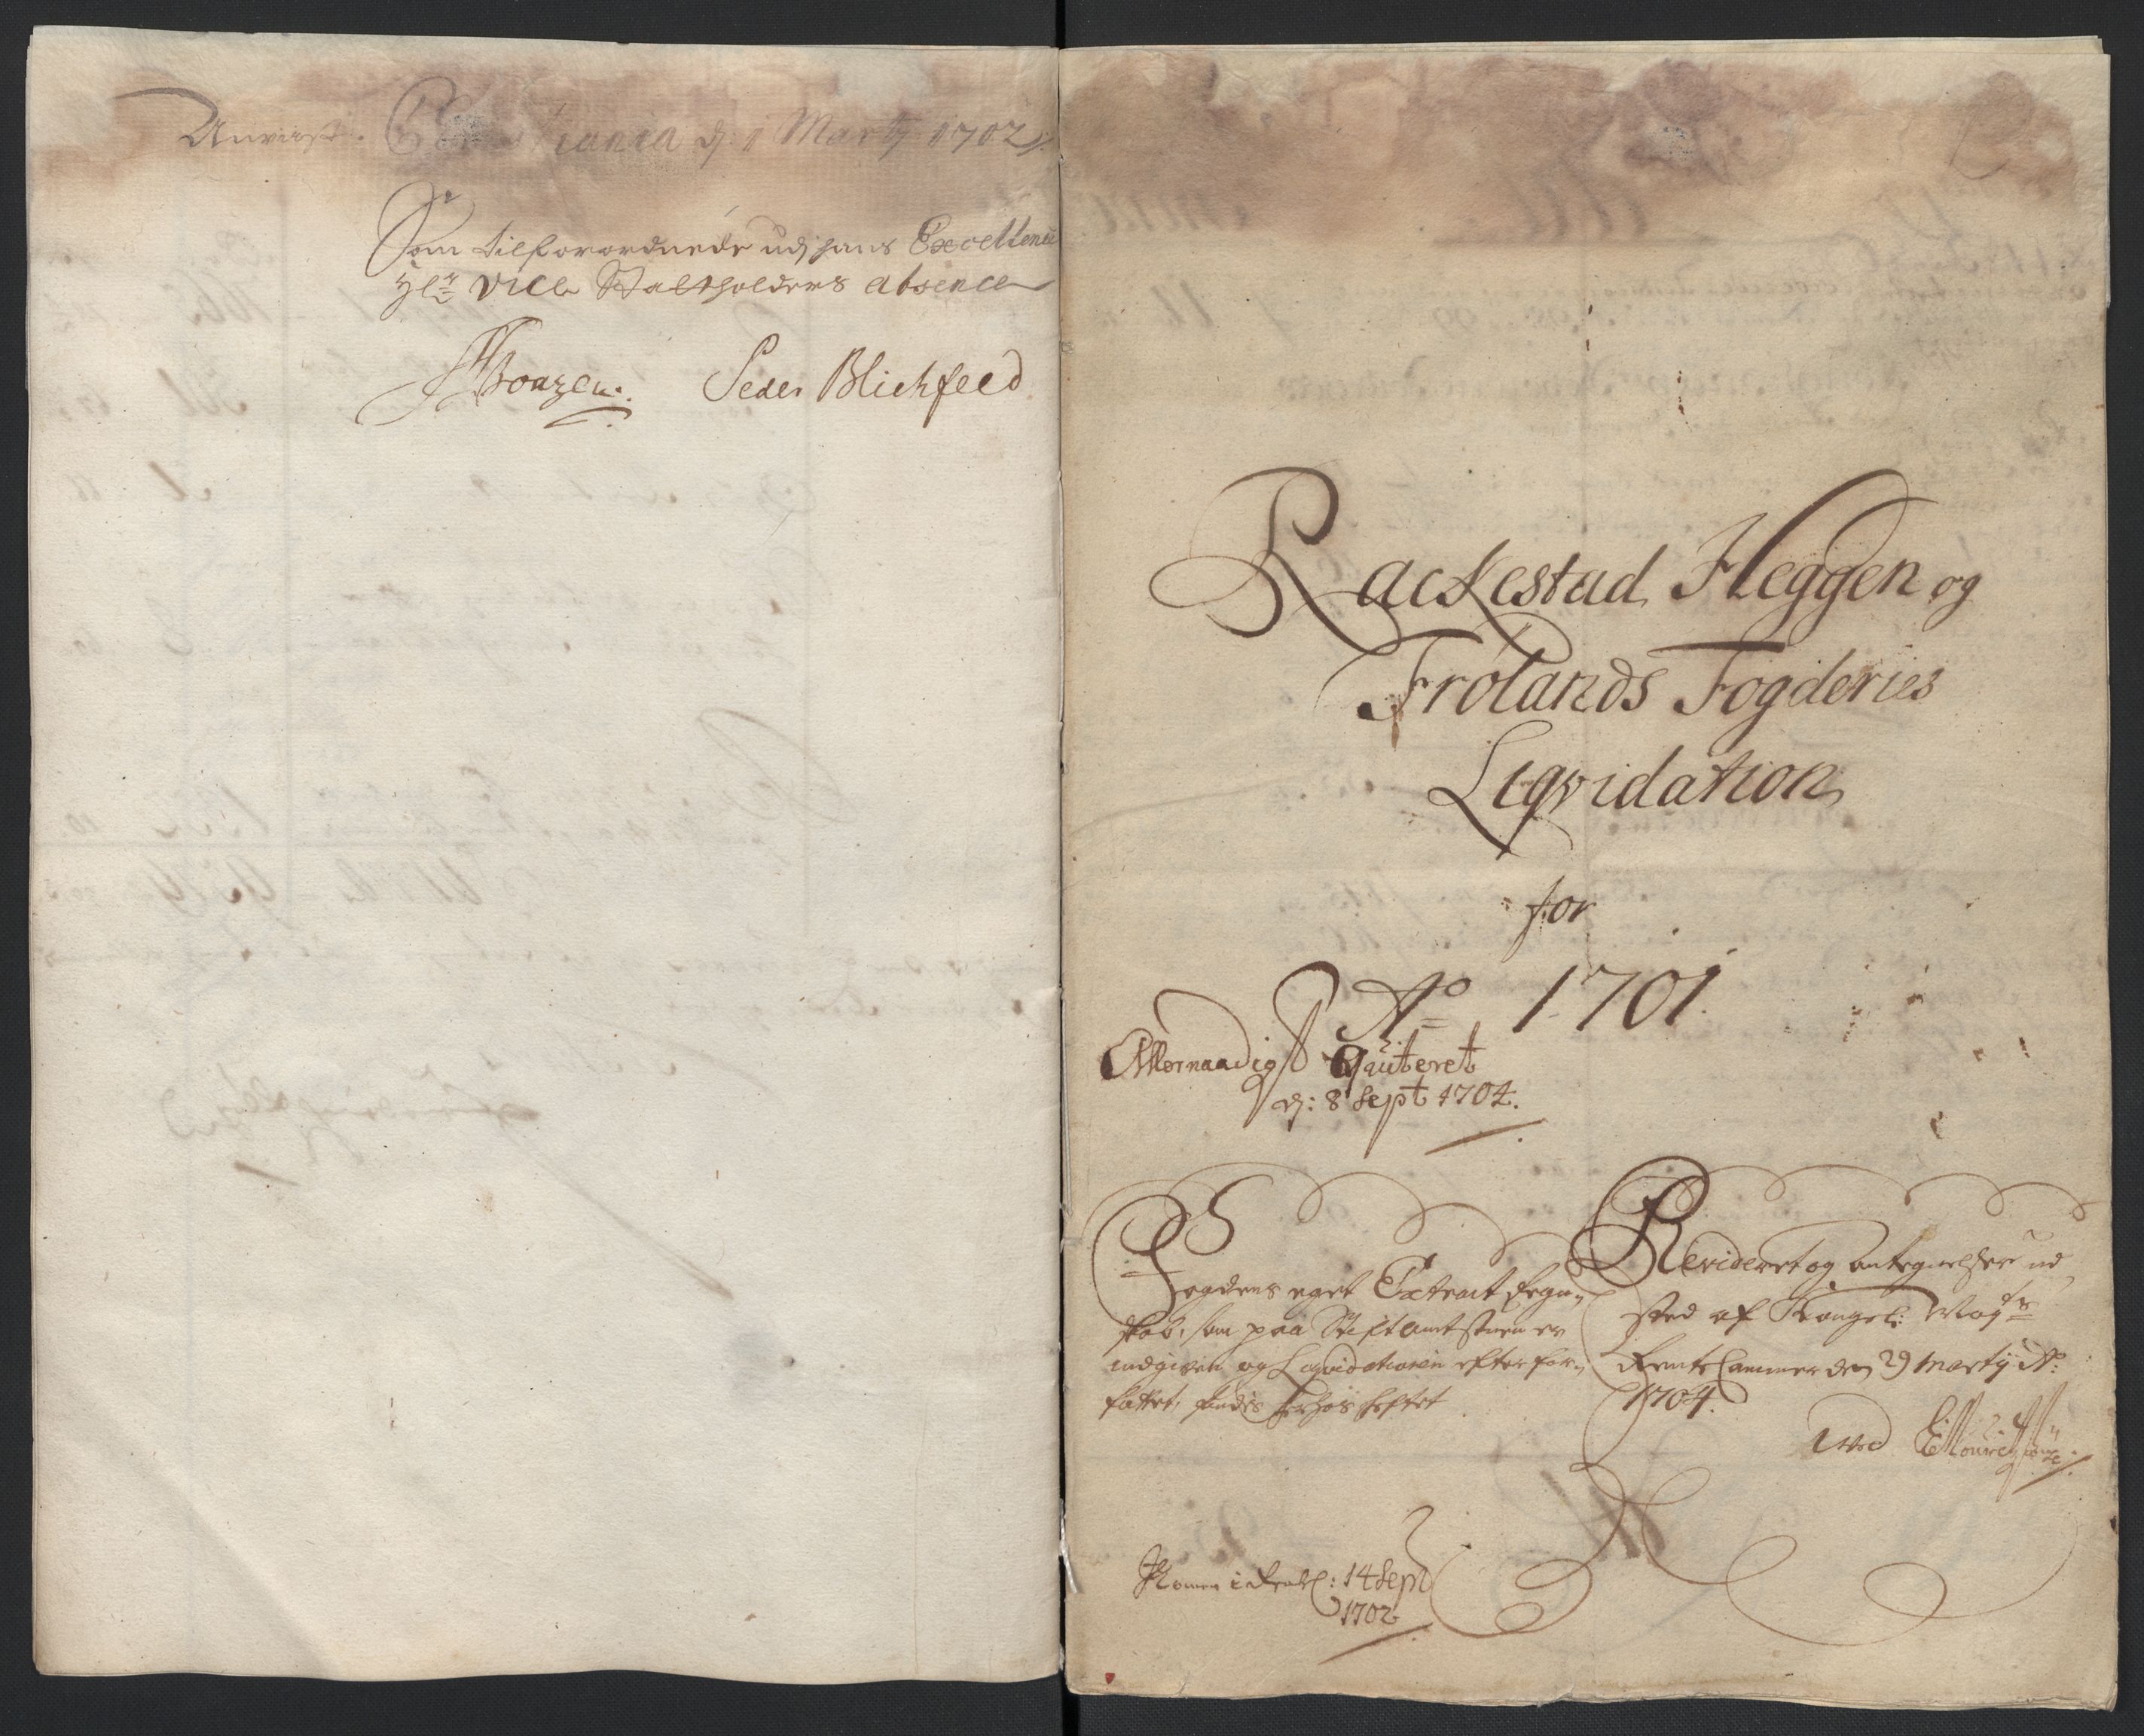 Anvist. Christiania d. 1 Martij 1702
Som tilforordnede udj hans Excellence
Hr. Vice Statholders absence
Peder Blichfeld
Rackestad, Heggen og
Frölands Fogderies
Liqvidation
for
Ao 1701.
Allernaadigst Qviteret
d: 8 Sept 1704.
Fogdens eget Extract Regn-
skab, som paa Stiftamtstuen er
indgiven og Liqvidationen efter for-
fattet, findes herhos heftet
Revideret og antegnelser ud
sted af Kongel: Maÿts
Rente Cammer den 29 Martij Ao:
1704.
Ved
Kommen i Rente C: 14 Sept
1702